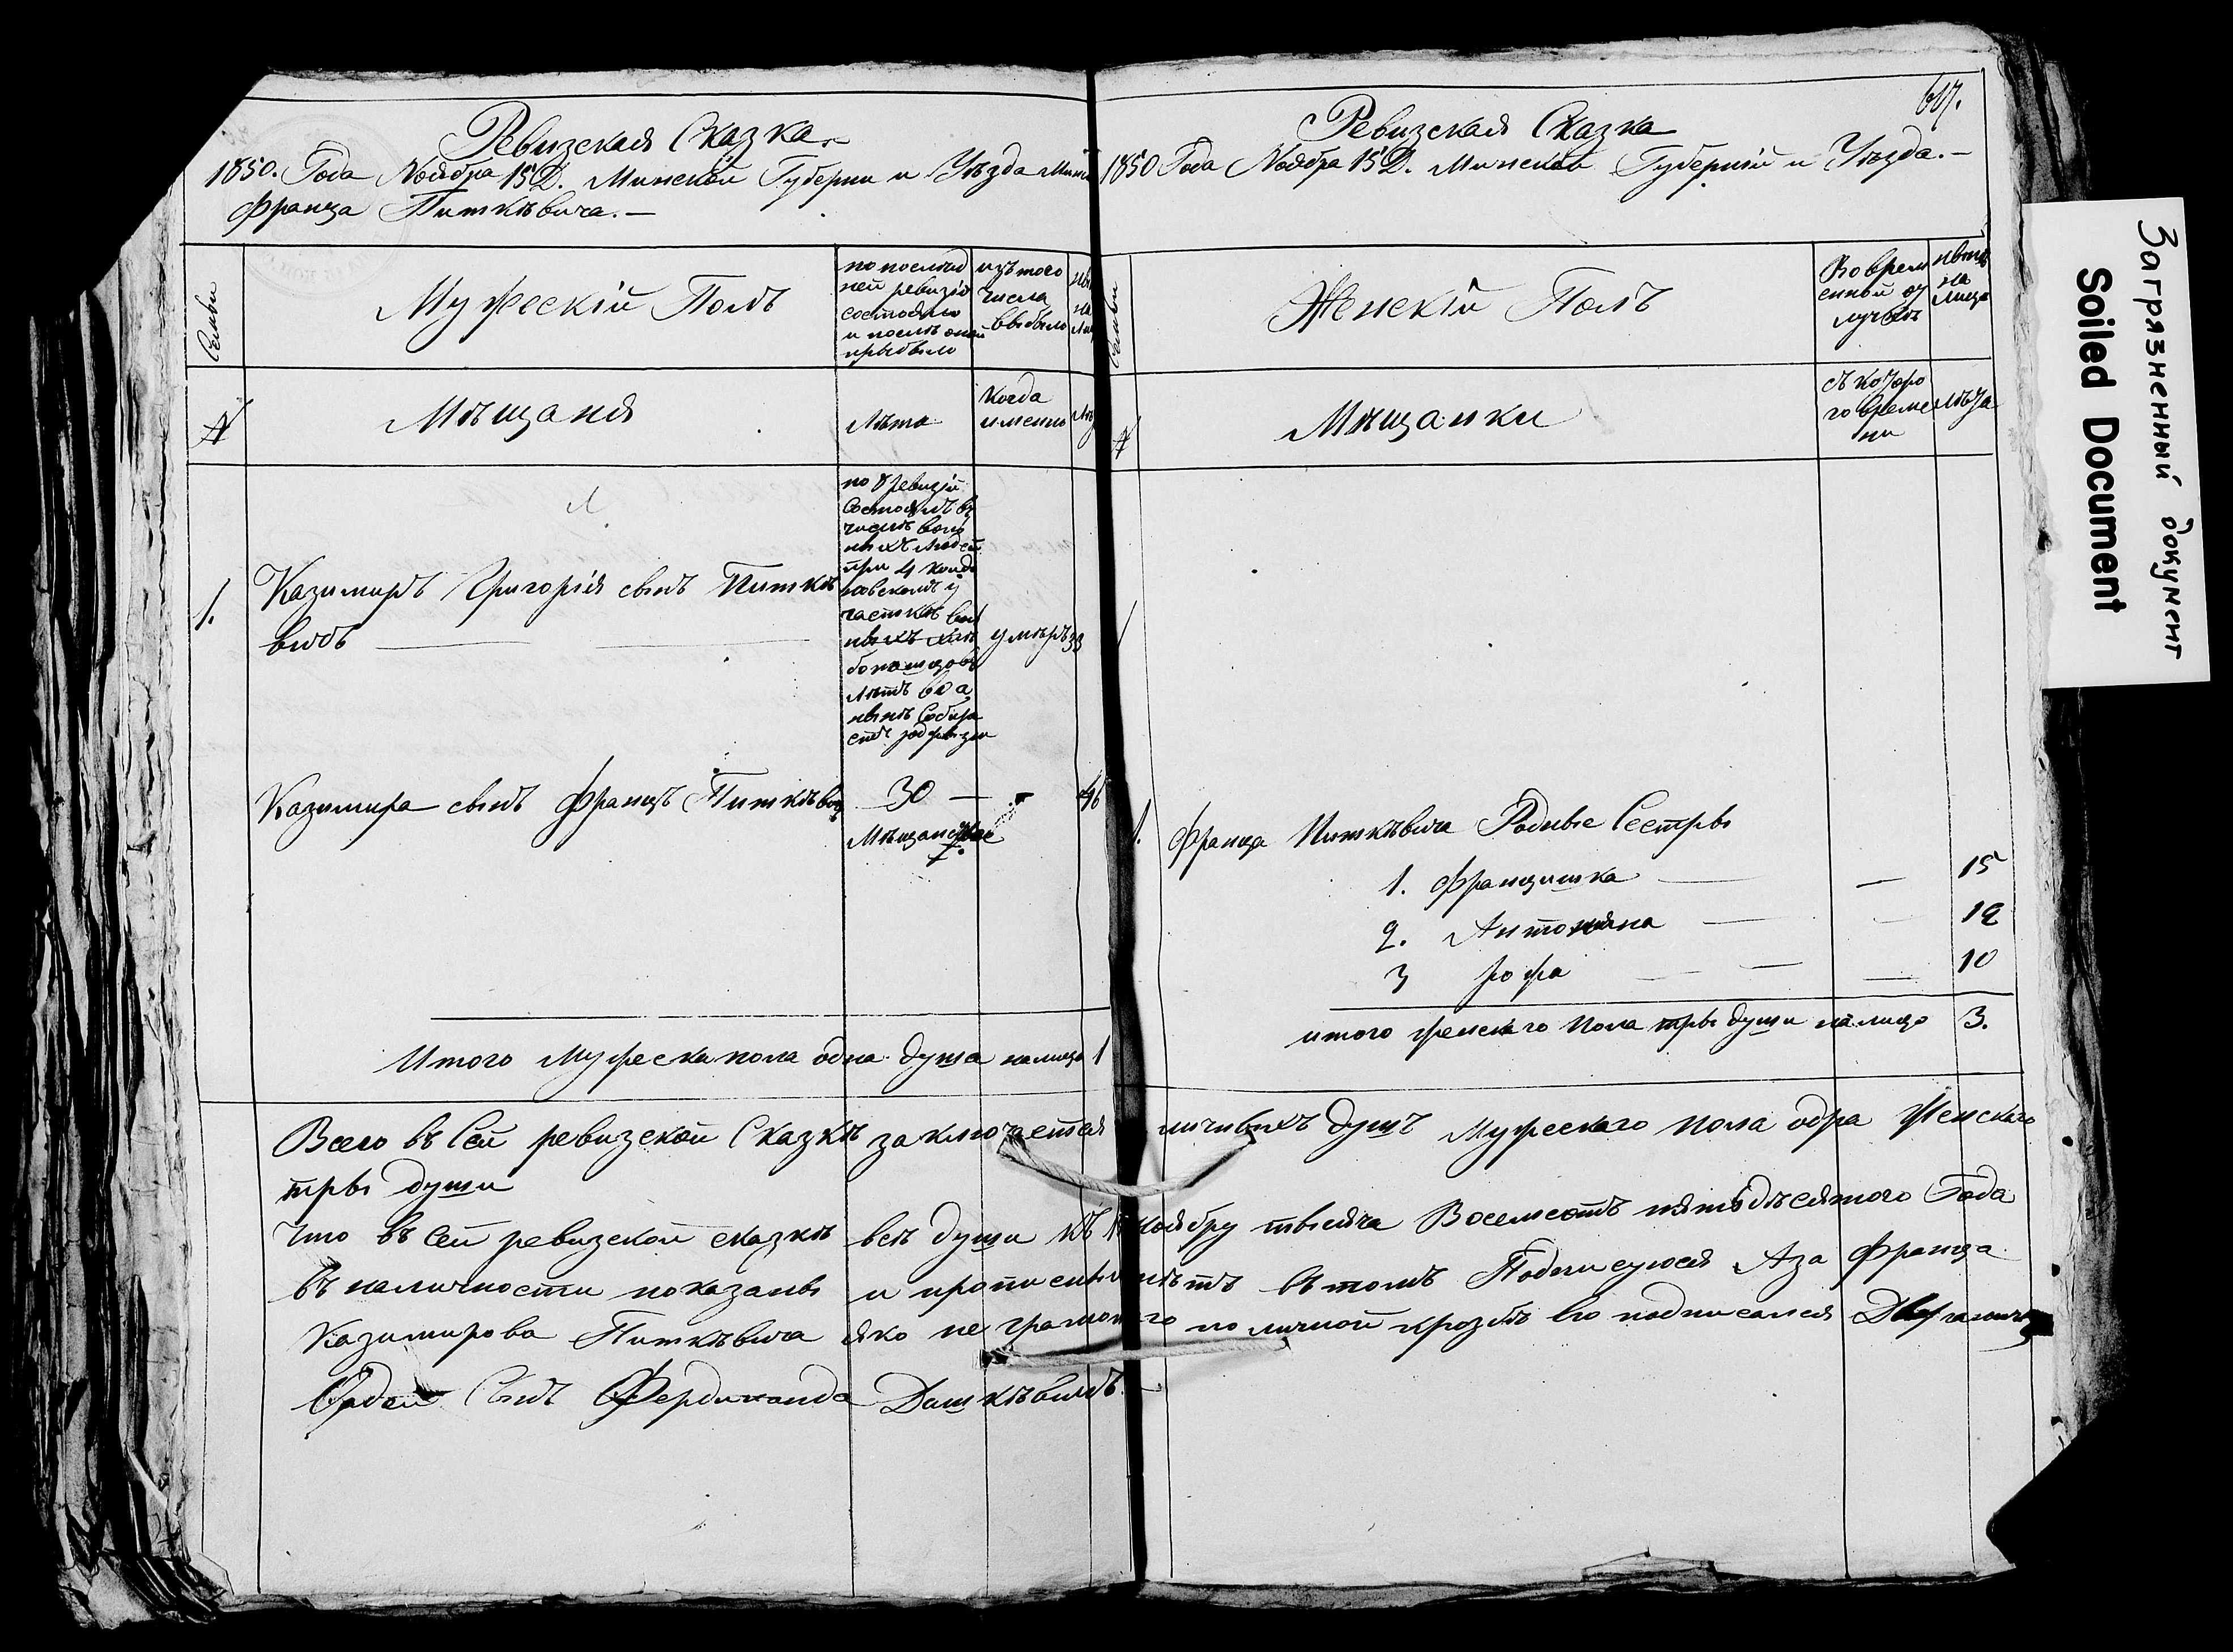 Ревизская Сказка.
1850. Года Ноября 15 Д. Минской Губерни и Уѣзда
Франца Питкѣвича. —
Семьи
Мужескій Полъ
по послѣд
ней ревизіи
состояло
и послѣ оной
прыбыло
изъ того
числа
выбыло
№
Мѣщаня
Лѣта
Когда
именно
1.
Казимиръ Григорія сынъ Питкѣ
вичъ
по 8 ревизіи
состоялъ въ
числѣ воль
ныхъ людей
при 4 койда
новскомъ у
часткѣ
умѣръ 33
Казимира сынъ Францъ Питкѣвичъ
30 — 46
Мѣщанскае
Итого Мужеска пола одна душа налицо 1
607.
Ревизская Сказка
1850 Года Ноября 15 Д. Минской Губерній и Уѣзда. —
Семьи
Женскій Полъ
Во времѣ
енной от
лучкѣ
нынѣ
на
лицо
№
Мѣщанки
съ которо
го време
ни
лѣта
1.
Франца Питкѣвича Родные Сестры
1. Францишка — — 15
2. Антонина — — 12
3 Розра — — 10
итого женскаго пола тры души налицо 3.
Всего въ Сей ревизской Сказкѣ заключается личныхъ душъ Мужескаго пола одна Женскаго
тры души
Что въ сей ревизской сказкѣ всѣ души къ 15 ноябру тысяча Восемсотъ пятьдѣсятого Года
въ наличности показаны и пропискы нѣтъ въ томъ Подписуюся Аза Франца
Казимирова Питкѣвича яко не грамотнаго по личной прозбѣ его подписался Дворанинъ
Фадей Сынъ Фердинанда Дашкѣвичъ. —
Загрязненный документ
Soiled Document